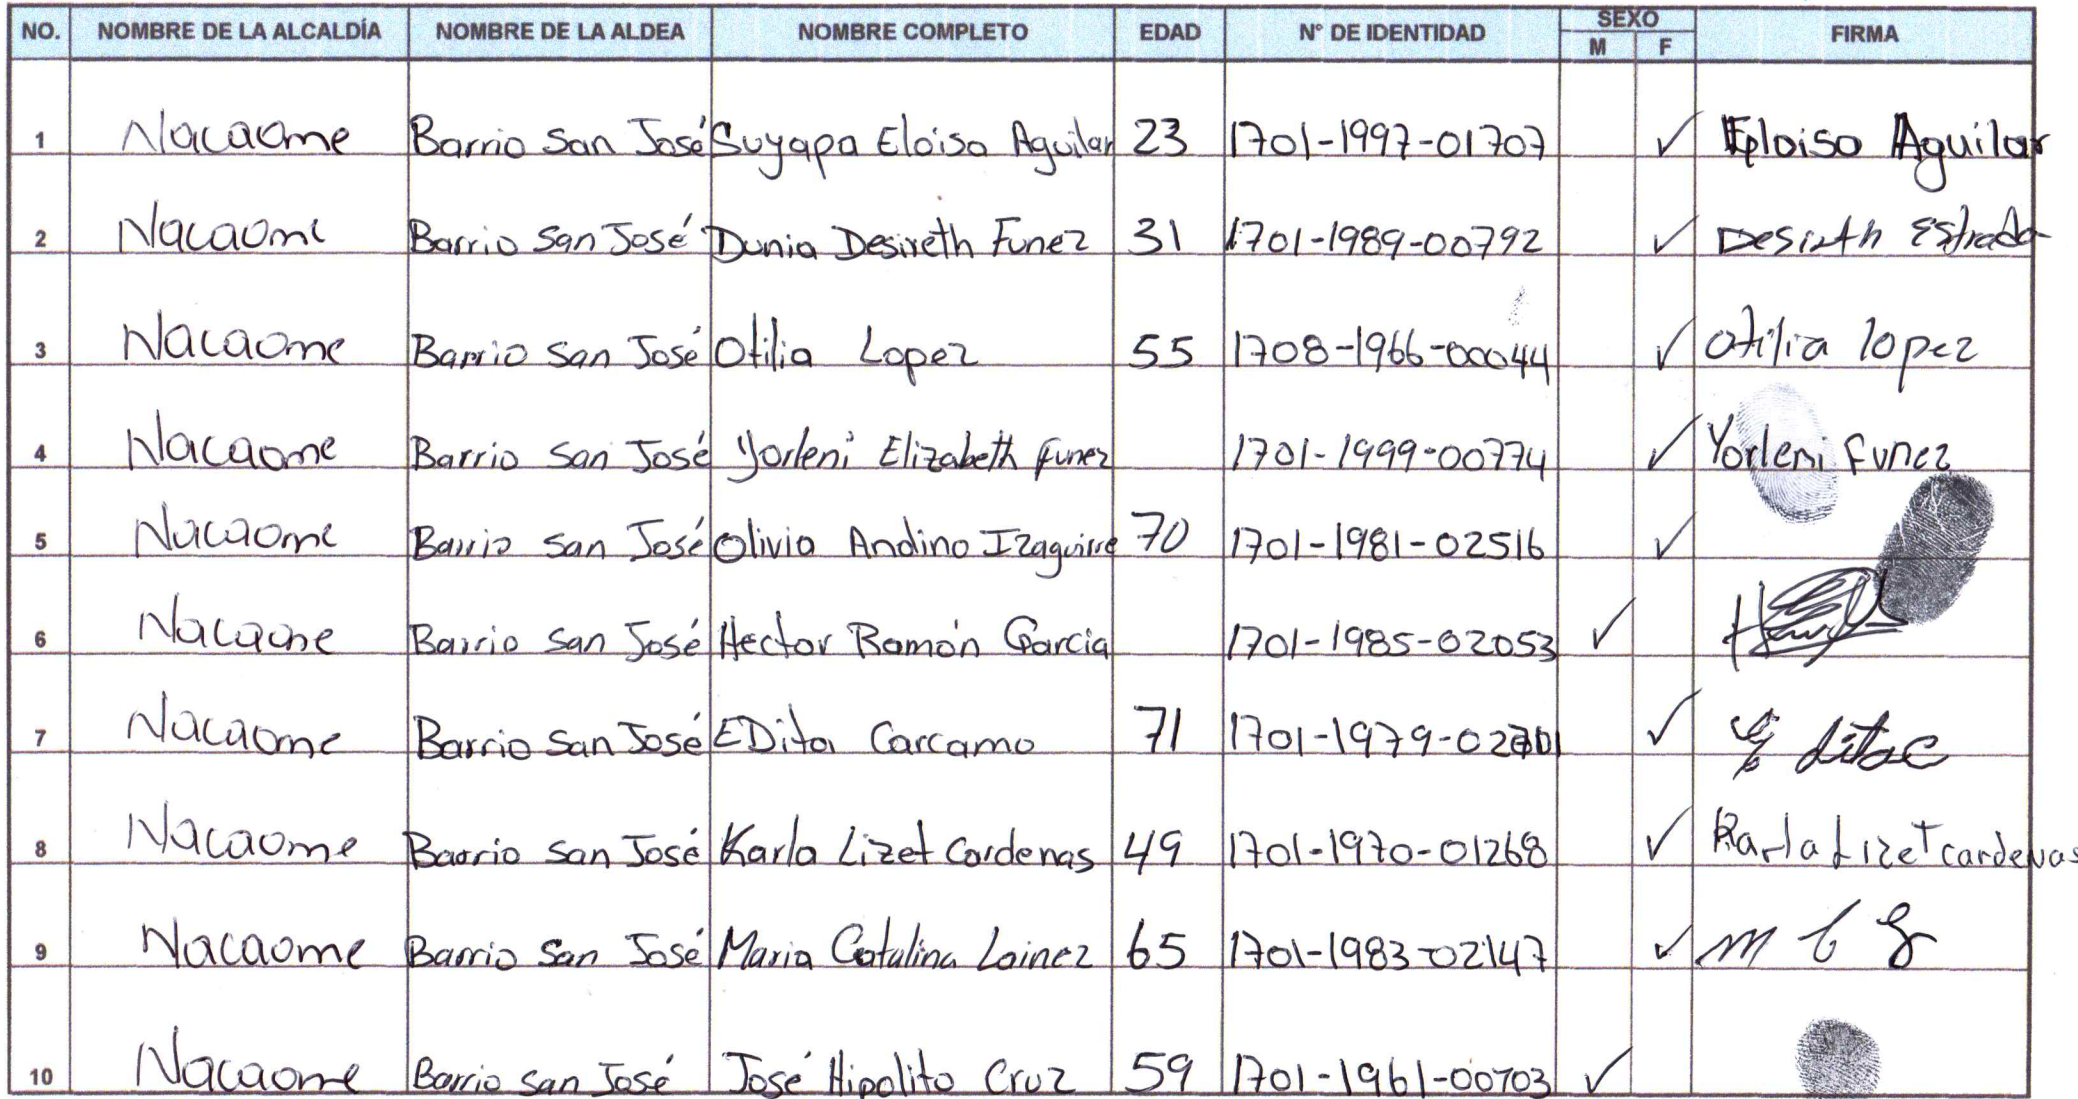 NO. NOMBRE DE LA ALCALDÍA NOMBRE DE LA ALDEA NOMBRE COMPLETO EDAD N° DE IDENTIDAD SEXO M F FIRMA
1 Nacaome Barrio San José Suyapa Eloisa Aguilar 23 1701-1997-01707 ✓ Eloisa Aguilar
2 Nacaome Barrio San José Dunia Desireth Funez 31 1701-1989-00792 ✓ Desireth Estrada
3 Nacaome Barrio San José Otilia Lopez 55 1708-1966-00044 ✓ otilia lopez
4 Nacaome Barrio San José Yorleni Elizabeth Funez 1701-1999-00774 ✓ Yorleni Funez
5 Nacaome Barrio San José Olivia Andino Izaguirre 70 1701-1981-02516 ✓
6 Nacaome Barrio San José Hector Ramón Garcia 1701-1985-02053 ✓
7 Nacaome Barrio San José EDita Carcamo 71 1701-1979-02701 ✓
8 Nacaome Barrio San José Karla Lizet Cardenas 49 1701-1970-01268 ✓ Karla Lizet cardenas
9 Nacaome Barrio San José Maria Catalina Lainez 65 1701-1983-02147 ✓
10 Nacaome Barrio San José José Hipolito Cruz 59 1701-1961-00703 ✓